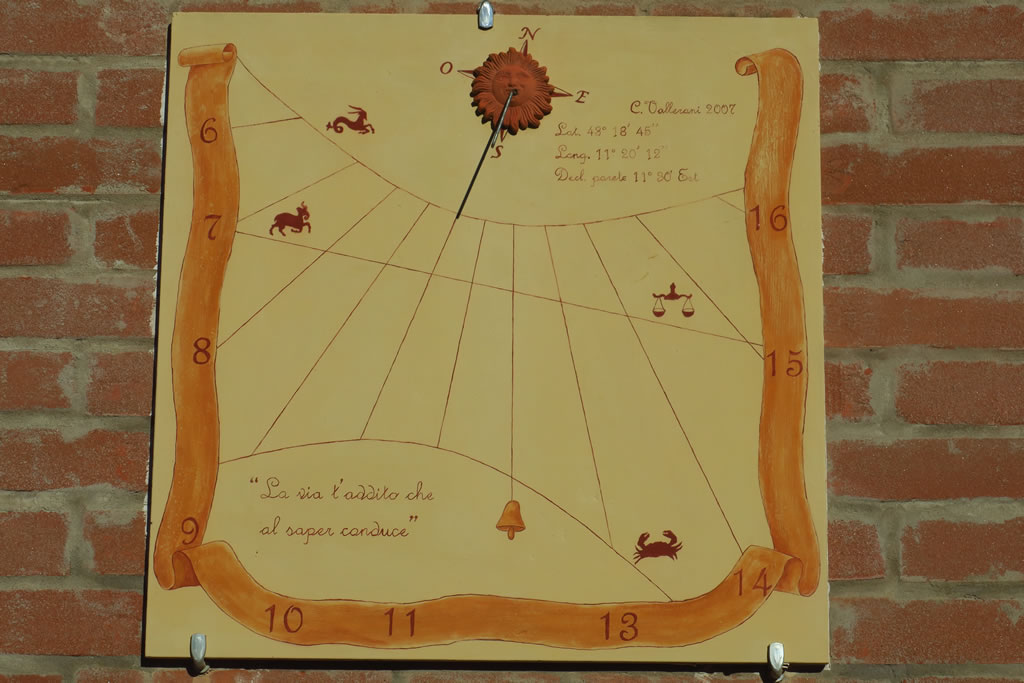 N
O
E
S
C. Vallerani 2007
Lat. 43° 18' 45"
Long. 11° 20' 12"
Decl. parete 11° 30' Est
6
7
8
9
10
11
13
14
15
16
"La via t'addito che
al saper conduce"